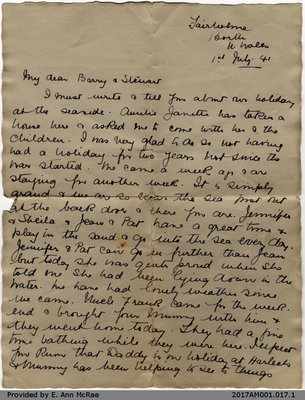 Fairholme
Borth
N Wales
1st July 41
My dear Barry & Stewart
I must write & tell you about our holiday
at the seaside. Auntie Janetta has taken a
house here & asked me to come with her & the
children. I was very glad to do so not having
had a holiday for two years but since the
war started. We came a week ago & are
staying for another week. It is simply
grand & we are so near the sea just out
at the back door & there you are. Jennifer
& Sheila & Jean & Pat have a great time &
play in the sand & go into the sea every day.
Jennifer & Pat can go in further than Jean
but today she was quite proud when she
told me she had been lying down in the
water. We have had lovely weather since
we came. Uncle Frank came for the week
end & brought your Mummy with him &
they went home today. They had a fine
time bathing while they were here. I expect
you know that Daddy is on holiday at Harlech
& Mummy has been helping to see to things
Provided by E. Ann McRae
2017AM001.017.1